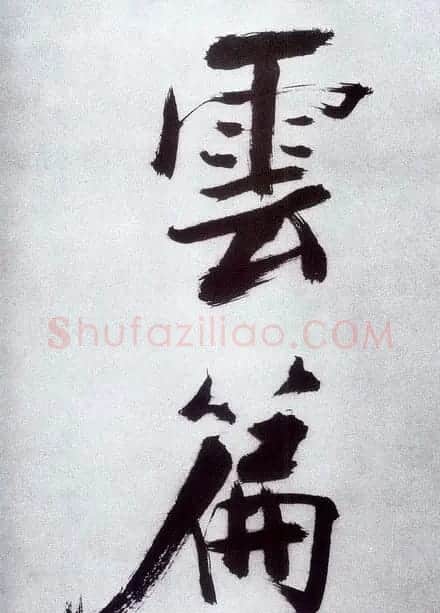 雲
篇
Shufaziliao.COM